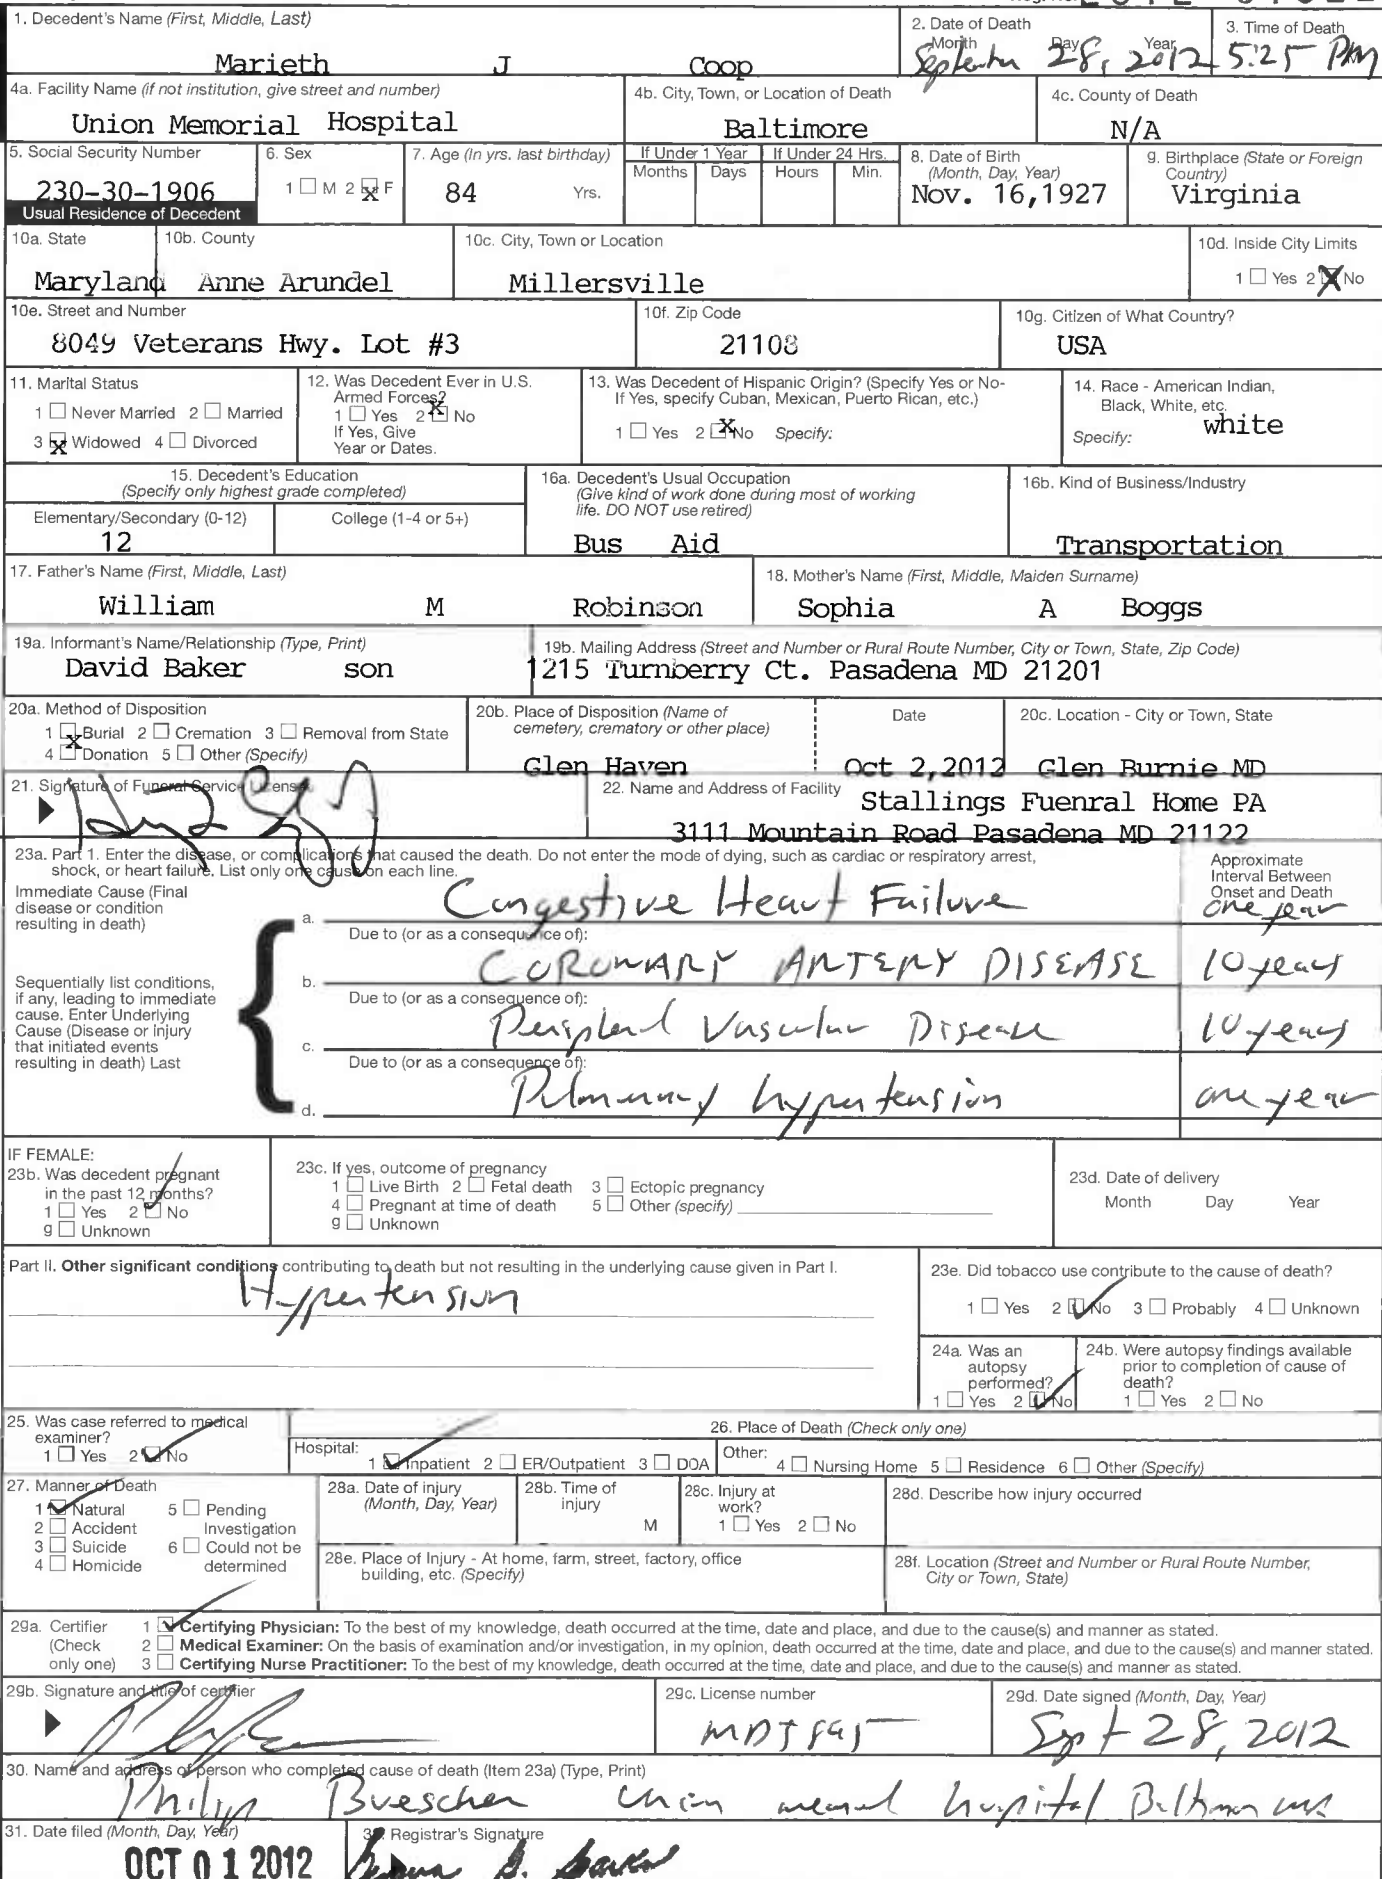 1. Decedent's Name (First, Middle, Last)
2. Date of Death
Month Day Year
3. Time of Death
Marieth J Coop
September 28, 2012 5:25 PM
4a. Facility Name (if not institution, give street and number)
4b. City, Town, or Location of Death
4c. County of Death
Union Memorial Hospital
Baltimore
N/A
5. Social Security Number
6. Sex
7. Age (In yrs. last birthday)
If Under 1 Year
If Under 24 Hrs.
8. Date of Birth
(Month, Day, Year)
9. Birthplace (State or Foreign
Country)
Months Days Hours Min.
230-30-1906
1 ☐ M 2 ☒ F
84 Yrs.
Nov. 16,1927
Virginia
Usual Residence of Decedent
10a. State
10b. County
10c. City, Town or Location
10d. Inside City Limits
Maryland
Anne Arundel
Millersville
1 ☐ Yes 2 ☒ No
10e. Street and Number
10f. Zip Code
10g. Citizen of What Country?
8049 Veterans Hwy. Lot #3
21108
USA
11. Marital Status
1 ☐ Never Married 2 ☐ Married
3 ☒ Widowed 4 ☐ Divorced
12. Was Decedent Ever in U.S.
Armed Forces?
1 ☐ Yes 2 ☒ No
If Yes, Give
Year or Dates.
13. Was Decedent of Hispanic Origin? (Specify Yes or No-
If Yes, specify Cuban, Mexican, Puerto Rican, etc.)
1 ☐ Yes 2 ☒ No Specify:
14. Race - American Indian,
Black, White, etc.
Specify: white
15. Decedent's Education
(Specify only highest grade completed)
Elementary/Secondary (0-12)
College (1-4 or 5+)
12
16a. Decedent's Usual Occupation
(Give kind of work done during most of working
life. DO NOT use retired)
Bus Aid
16b. Kind of Business/Industry
Transportation
17. Father's Name (First, Middle, Last)
William M Robinson
18. Mother's Name (First, Middle, Maiden Surname)
Sophia A Boggs
19a. Informant's Name/Relationship (Type, Print)
David Baker son
19b. Mailing Address (Street and Number or Rural Route Number, City or Town, State, Zip Code)
1215 Turnberry Ct. Pasadena MD 21201
20a. Method of Disposition
1 ☒ Burial 2 ☐ Cremation 3 ☐ Removal from State
4 ☐ Donation 5 ☐ Other (Specify)
20b. Place of Disposition (Name of
cemetery, crematory or other place)
Glen Haven
Date
Oct 2,2012
20c. Location - City or Town, State
Glen Burnie MD
21. Signature of Funeral Service Licensee
22. Name and Address of Facility
Stallings Fuenral Home PA
3111 Mountain Road Pasadena MD 21122
23a. Part 1. Enter the disease, or complications that caused the death. Do not enter the mode of dying, such as cardiac or respiratory arrest,
shock, or heart failure. List only one cause on each line.
Approximate
Interval Between
Onset and Death
Immediate Cause (Final
disease or condition
resulting in death)
a. Congestive Heart Failure
one year
Due to (or as a consequence of):
Sequentially list conditions,
if any, leading to immediate
cause. Enter Underlying
Cause (Disease or Injury
that initiated events
resulting in death) Last
b. CORONARY ARTERY DISEASE
10 years
Due to (or as a consequence of):
c. Peripheral Vascular Disease
10 years
Due to (or as a consequence of):
d. Pulmonary hypertension
one year
IF FEMALE:
23b. Was decedent pregnant
in the past 12 months?
1 ☐ Yes 2 ☑ No
9 ☐ Unknown
23c. If yes, outcome of pregnancy
1 ☐ Live Birth 2 ☐ Fetal death 3 ☐ Ectopic pregnancy
4 ☐ Pregnant at time of death 5 ☐ Other (specify)
9 ☐ Unknown
23d. Date of delivery
Month Day Year
Part II. Other significant conditions contributing to death but not resulting in the underlying cause given in Part I.
Hypertension
23e. Did tobacco use contribute to the cause of death?
1 ☐ Yes 2 ☑ No 3 ☐ Probably 4 ☐ Unknown
24a. Was an
autopsy
performed?
1 ☐ Yes 2 ☑ No
24b. Were autopsy findings available
prior to completion of cause of
death?
1 ☐ Yes 2 ☐ No
25. Was case referred to medical
examiner?
1 ☐ Yes 2 ☑ No
26. Place of Death (Check only one)
Hospital:
1 ☑ Inpatient 2 ☐ ER/Outpatient 3 ☐ DOA
Other:
4 ☐ Nursing Home 5 ☐ Residence 6 ☐ Other (Specify)
27. Manner of Death
1 ☑ Natural 5 ☐ Pending
2 ☐ Accident Investigation
3 ☐ Suicide 6 ☐ Could not be
4 ☐ Homicide determined
28a. Date of injury
(Month, Day, Year)
28b. Time of
injury
M
28c. Injury at
work?
1 ☐ Yes 2 ☐ No
28d. Describe how injury occurred
28e. Place of Injury - At home, farm, street, factory, office
building, etc. (Specify)
28f. Location (Street and Number or Rural Route Number,
City or Town, State)
29a. Certifier
(Check
only one)
1 ☑ Certifying Physician: To the best of my knowledge, death occurred at the time, date and place, and due to the cause(s) and manner as stated.
2 ☐ Medical Examiner: On the basis of examination and/or investigation, in my opinion, death occurred at the time, date and place, and due to the cause(s) and manner stated.
3 ☐ Certifying Nurse Practitioner: To the best of my knowledge, death occurred at the time, date and place, and due to the cause(s) and manner as stated.
29b. Signature and title of certifier
29c. License number
29d. Date signed (Month, Day, Year)
Sept 28, 2012
30. Name and address of person who completed cause of death (Item 23a) (Type, Print)
Philip Buescher Union memorial hospital Baltimore
31. Date filed (Month, Day, Year)
OCT 0 1 2012
Registrar's Signature